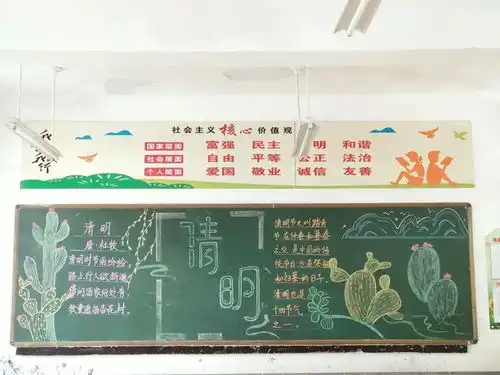 社会主义核心价值观
国家层面 富强 民主 明 和谐
社会层面 自由 平等 公正 法治
个人层面 爱国 敬业 诚信 友善
清明
唐·杜牧
清明时节雨纷纷,
路上行人欲断魂
借问酒家何处有,
牧童遥指杏花村。
清明
清明节又叫踏青
节,在仲春和暮春
之交,是中国的传
统节日,也是
扫墓的日子,
清明也是
二十四节气
之一。